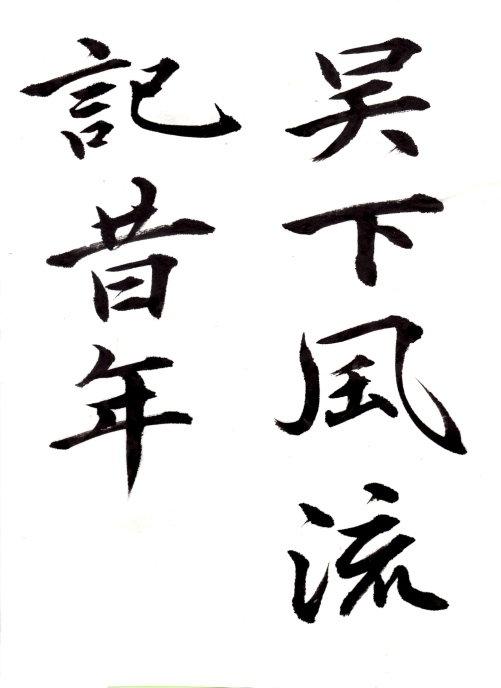 吴下風流
記昔年